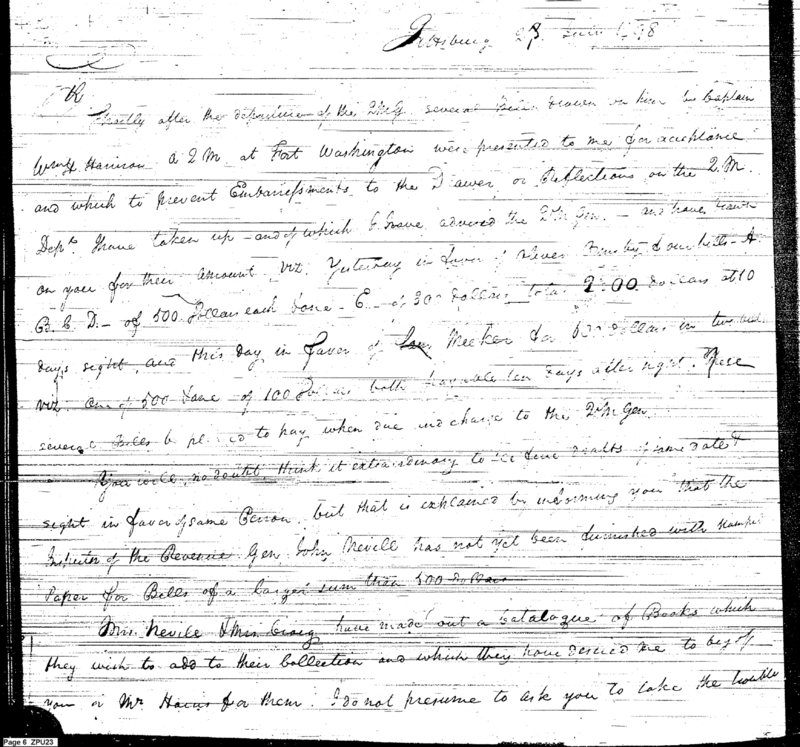 Pittsburg 2 June 1798
Sir
Shortly after the departure of the QMG several Bills drawn on him by Captain
Wm H Harrison a QM at Fort Washington were presented to me for acceptance
and which to prevent Embarrassments to the Drawer or Reflections on the QM
Dept. I have taken up - and of which I have advised the QM Gen. - and have drawn
on you for their amount viz. Yesterday in favor of four bills - A
B. C. D. - of 500 Dollars each & one - E - of 300 Dollars, total 2300 Dollars at 10
days sight, and this day in favor of Meeker for 600 Dollars in two
viz. one of 500 & one of 100 Dollars both payable ten days after sight. These
several Bills be pleased to pay when due and charge to the QM Gen
You will, no doubt, think it extraordinary to see four drafts of same date &
sight in favor of same Person, but that is explained by informing you that the
Inspector of the Revenue Gen. John Nevill has not yet been furnished with Stampt
Paper for Bills of a larger sum than 500 Dollars
Mrs. Nevill & Mrs. Craig have made out a Catalogue of Books which
they wish to add to their Collection and which they have desired me to beg of
you or Mr Harris for them. I do not presume to ask you to take the trouble
Page 6 ZPU23